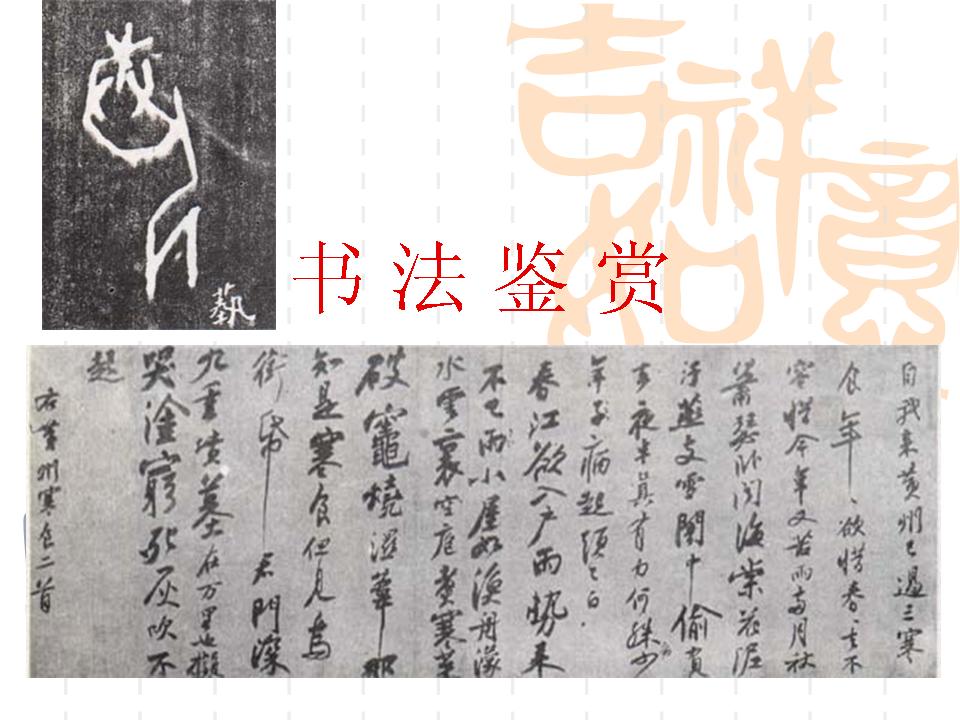 藝
吉祥如意
书法鉴赏
自我来黄州已過三寒
食年、欲惜春、去不
容惜今年又苦雨兩月秋
蕭瑟卧聞海棠花泥
汙燕支雪闇中偷負
去夜半真有力何殊少
年子病起頭已白
春江欲入户雨勢来
不已雨小屋如漁舟濛
水雲裏空庖煮寒菜
破竈燒濕葦那
知是寒食但見烏
銜帋君門深
九重墳墓在万里也擬
哭塗窮死灰吹不
起
右黄州寒食二首